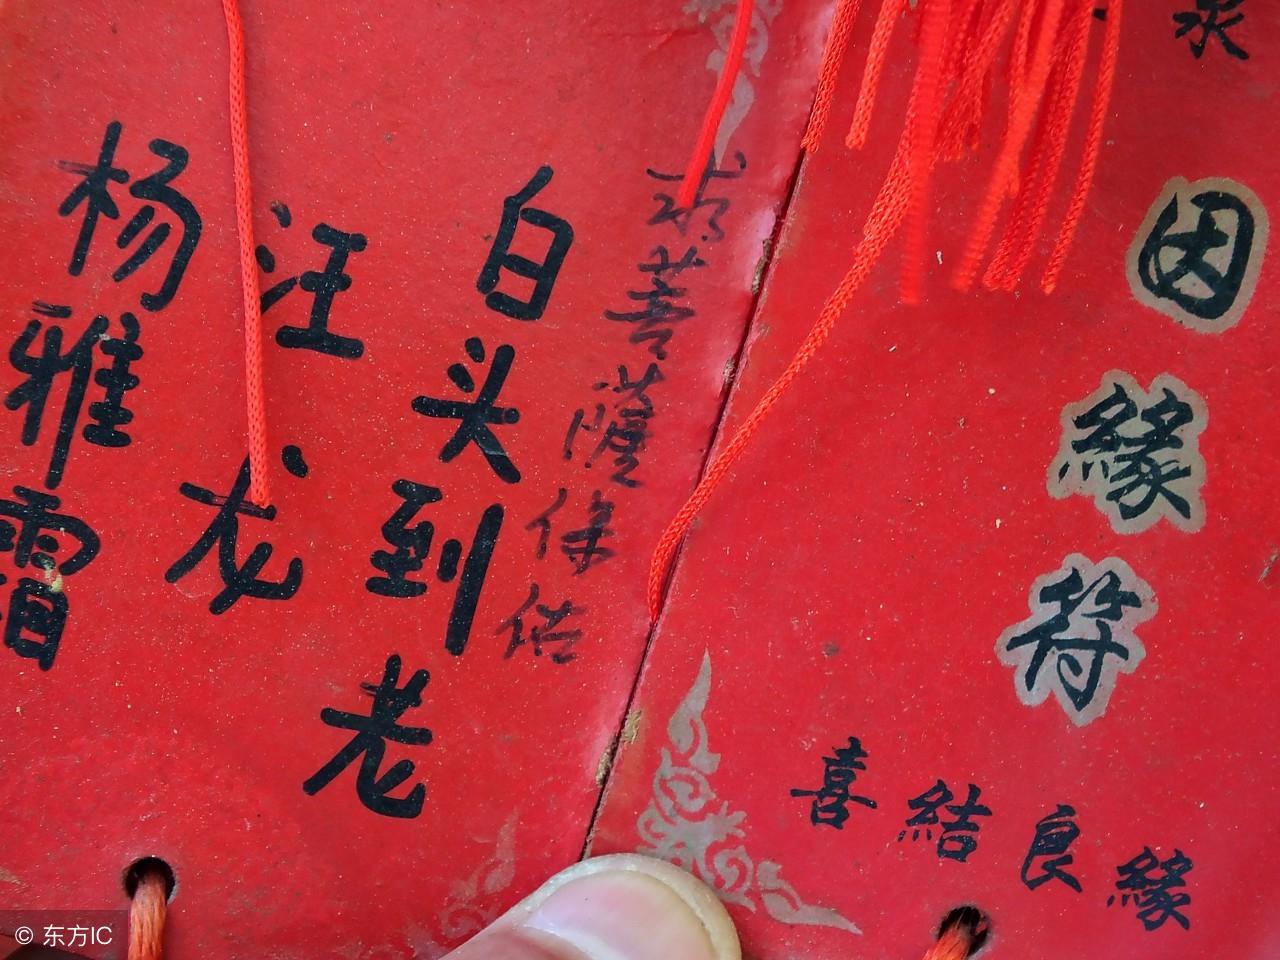 因緣符
喜結良緣
求菩薩保佑
白头到老
汪龙
杨雅霜
© 东方IC